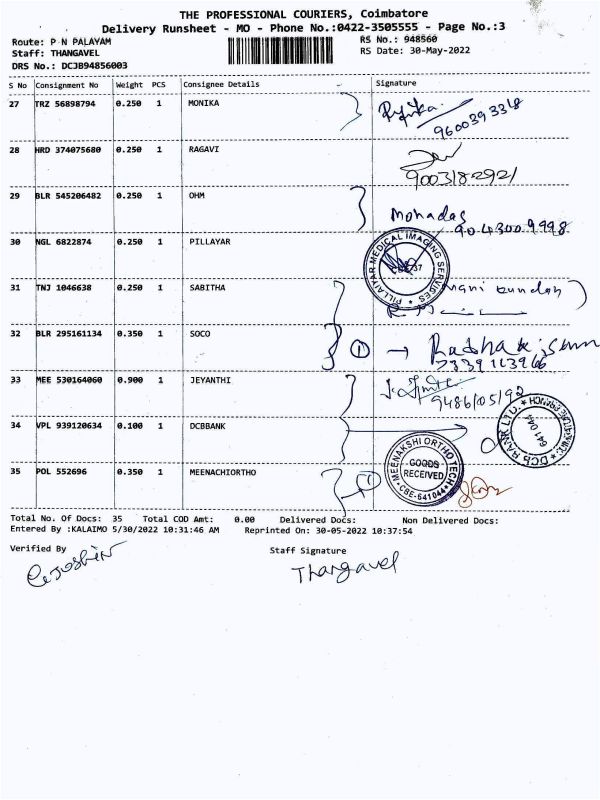 THE PROFESSIONAL COURIERS, Coimbatore
Delivery Runsheet - MO - Phone No.:0422-3505555 - Page No.:3
Route: P N PALAYAM
RS No.: 948560
Staff: THANGAVEL
RS Date: 30-May-2022
DRS No.: DCJB94856003
S No Consignment No Weight PCS Consignee Details Signature
27 TRZ 56898794 0.250 1 MONIKA
9600393318
28 HRD 374075680 0.250 1 RAGAVI
9003182921
29 BLR 545206482 0.250 1 OHM
Mohadas
904300 9998
30 NGL 6822874 0.250 1 PILLAYAR
PILLAIYAR MEDICAL IMAGING SERVICES
31 TNJ 1046638 0.250 1 SABITHA
32 BLR 295161134 0.350 1 SOCO
① →
7339113966
33 MEE 530164060 0.900 1 JEYANTHI
9486105192
34 VPL 939120634 0.100 1 DCBBANK
DCB BANK LTD.
641 044
35 POL 552696 0.350 1 MEENACHIORTHO
①
MEENAKSHI ORTHO TECH
GOODS
RECEIVED
CBE-641044
Total No. Of Docs: 35 Total COD Amt: 0.00 Delivered Docs: Non Delivered Docs:
Entered By :KALAIMO 5/30/2022 10:31:46 AM Reprinted On: 30-05-2022 10:37:54
Verified By
Staff Signature
Thangavel